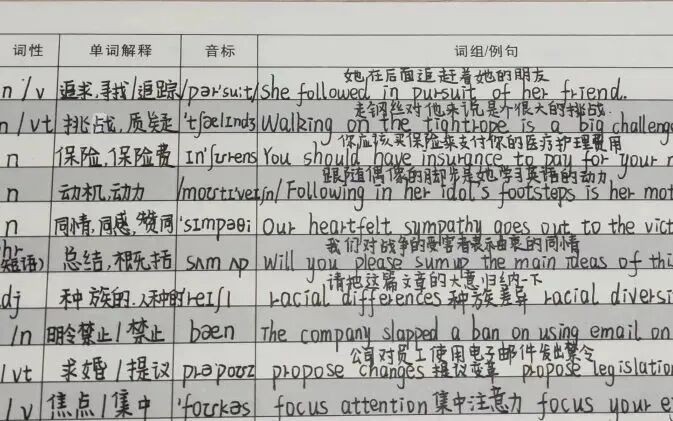 词性 单词解释 音标 词组/例句
她在后面追赶着她的朋友
n/v 追求,寻找/追踪 /pər'su:t/ She followed in pursuit of her friend.
走钢丝对他来说是个很大的挑战.
n/vt 挑战,质疑 'tʃælɪndʒ Walking on the tightrope is a big challeng
你应该买保险来支付你的医疗护理费用
n 保险,保险费 ɪn'ʃʊrens You should have insurance to pay for your
跟随偶像的脚步是她学习英语的动力
n 动机,动力 /moʊtɪ'veɪʃn/ Following in her idol's footsteps is her mot
n 同情,同感,赞同 'sɪmpəθi Our heartfelt sympathy goes out to the vict
我们对战争的受害者表示由衷的同情
短语) 总结,概括 sʌm ʌp Will you please sum up the main ideas of thi
请把这篇文章的大意归纳一下
dj 种族的,人种的 'reɪʃl racial differences 种族差异 racial diversi
/n 明令禁止/禁止 bæn The company slapped a ban on using email on
公司对员工使用电子邮件发出禁令
/vt 求婚/提议 prəpoʊz propose changes 提议变革 propose legislation
/v 焦点/集中 'foʊkəs focus attention 集中注意力 focus your e